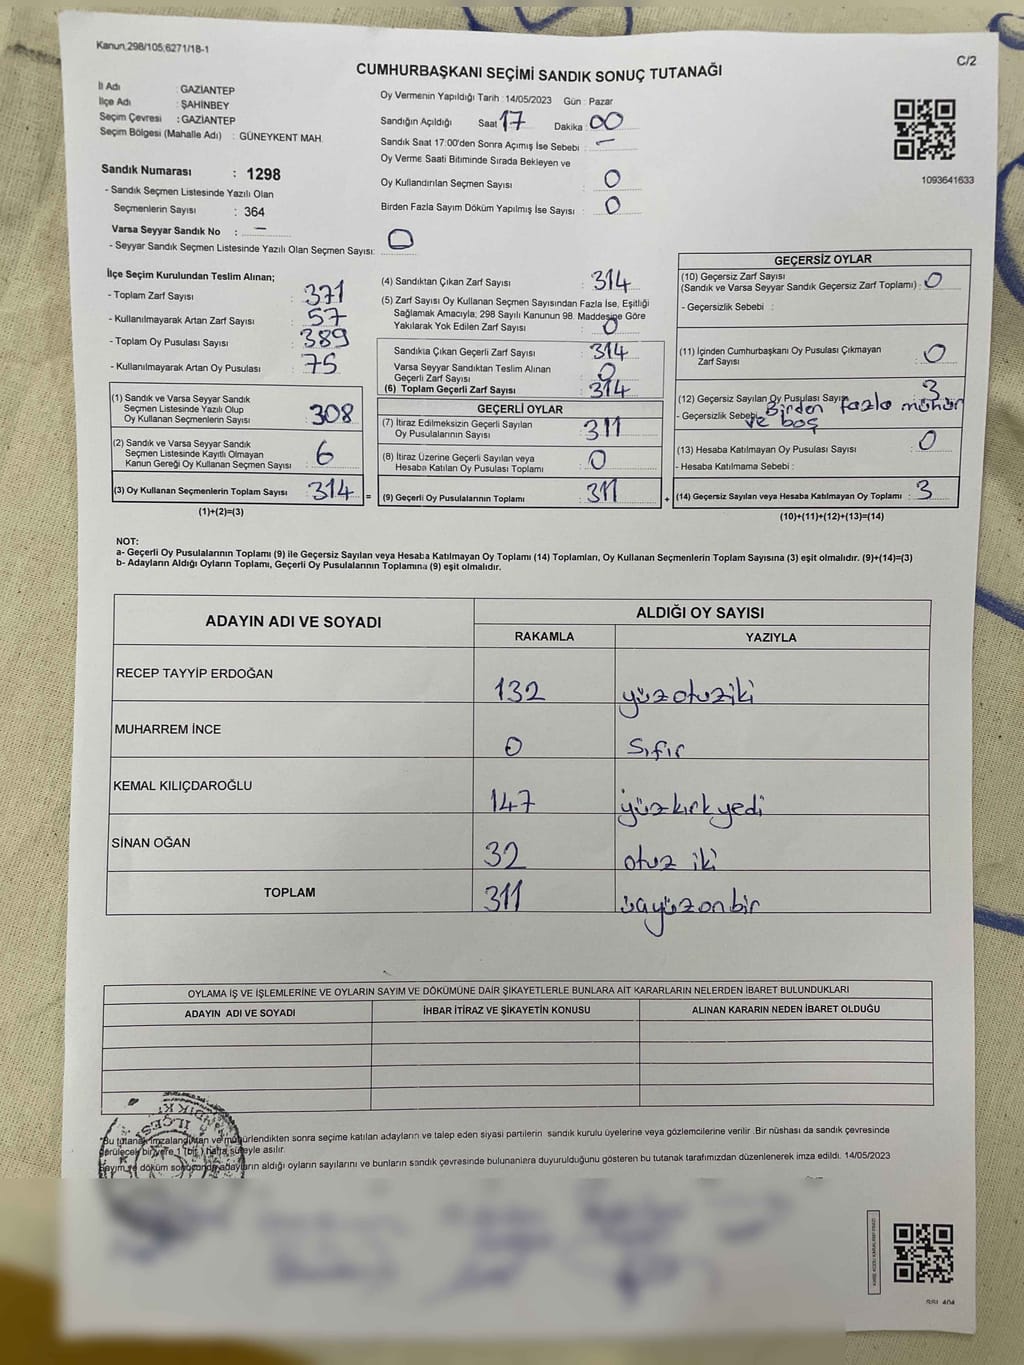 Kanun;298/105;6271/18-1
C/2
CUMHURBAŞKANI SEÇİMİ SANDIK SONUÇ TUTANAĞI
İl Adı : GAZİANTEP
İlçe Adı : ŞAHİNBEY
Seçim Çevresi : GAZİANTEP
Seçim Bölgesi (Mahalle Adı) : GÜNEYKENT MAH.
Oy Vermenin Yapıldığı Tarih : 14/05/2023 Gün : Pazar
Sandığın Açıldığı Saat 17 Dakika : 00
Sandık Saat 17:00'den Sonra Açımış İse Sebebi : -
Oy Verme Saati Bitiminde Sırada Bekleyen ve
Oy Kullandırılan Seçmen Sayısı : 0
Birden Fazla Sayım Döküm Yapılmış İse Sayısı : 0
1093641633
Sandık Numarası : 1298
- Sandık Seçmen Listesinde Yazılı Olan
Seçmenlerin Sayısı : 364
Varsa Seyyar Sandık No : -
- Seyyar Sandık Seçmen Listesinde Yazılı Olan Seçmen Sayısı: 0
İlçe Seçim Kurulundan Teslim Alınan;
- Toplam Zarf Sayısı : 371
- Kullanılmayarak Artan Zarf Sayısı : 57
- Toplam Oy Pusulası Sayısı : 389
- Kullanılmayarak Artan Oy Pusulası : 75
(1) Sandık ve Varsa Seyyar Sandık
Seçmen Listesinde Yazılı Olup
Oy Kullanan Seçmenlerin Sayısı : 308
(2) Sandık ve Varsa Seyyar Sandık
Seçmen Listesinde Kayıtlı Olmayan
Kanun Gereği Oy Kullanan Seçmen Sayısı : 6
(3) Oy Kullanan Seçmenlerin Toplam Sayısı : 314 =
(1)+(2)=(3)
(4) Sandıktan Çıkan Zarf Sayısı : 314
(5) Zarf Sayısı Oy Kullanan Seçmen Sayısından Fazla İse, Eşitliği
Sağlamak Amacıyla; 298 Sayılı Kanunun 98. Maddesine Göre
Yakılarak Yok Edilen Zarf Sayısı : 0
Sandıkta Çıkan Geçerli Zarf Sayısı : 314
Varsa Seyyar Sandıktan Teslim Alınan
Geçerli Zarf Sayısı : 0
(6) Toplam Geçerli Zarf Sayısı : 314
GEÇERLİ OYLAR
(7) İtiraz Edilmeksizin Geçerli Sayılan
Oy Pusulalarının Sayısı : 311
(8) İtiraz Üzerine Geçerli Sayılan veya
Hesaba Katılan Oy Pusulası Toplamı : 0
(9) Geçerli Oy Pusulalarının Toplamı : 311 +
GEÇERSİZ OYLAR
(10) Geçersiz Zarf Sayısı
(Sandık ve Varsa Seyyar Sandık Geçersiz Zarf Toplamı) : 0
- Geçersizlik Sebebi :
(11) İçinden Cumhurbaşkanı Oy Pusulası Çıkmayan
Zarf Sayısı : 0
(12) Geçersiz Sayılan Oy Pusulası Sayısı 3
- Geçersizlik Sebebi Birden fazla mühür
ve boş
(13) Hesaba Katılmayan Oy Pusulası Sayısı : 0
- Hesaba Katılmama Sebebi :
(14) Geçersiz Sayılan veya Hesaba Katılmayan Oy Toplamı : 3
(10)+(11)+(12)+(13)=(14)
NOT:
a- Geçerli Oy Pusulalarının Toplamı (9) ile Geçersiz Sayılan veya Hesaba Katılmayan Oy Toplamı (14) Toplamları, Oy Kullanan Seçmenlerin Toplam Sayısına (3) eşit olmalıdır. (9)+(14)=(3)
b- Adayların Aldığı Oyların Toplamı, Geçerli Oy Pusulalarının Toplamına (9) eşit olmalıdır.
ADAYIN ADI VE SOYADI
ALDIĞI OY SAYISI
RAKAMLA YAZIYLA
RECEP TAYYİP ERDOĞAN 132 yüzotuziki
MUHARREM İNCE 0 Sıfır
KEMAL KILIÇDAROĞLU 147 yüzkırkyedi
SİNAN OĞAN 32 otuz iki
TOPLAM 311 üçyüzonbir
OYLAMA İŞ VE İŞLEMLERİNE VE OYLARIN SAYIM VE DÖKÜMÜNE DAİR ŞİKAYETLERLE BUNLARA AİT KARARLARIN NELERDEN İBARET BULUNDUKLARI
ADAYIN ADI VE SOYADI İHBAR İTİRAZ VE ŞİKAYETİN KONUSU ALINAN KARARIN NEDEN İBARET OLDUĞU
*Bu tutanak imzalandıktan ve mühürlendikten sonra seçime katılan adayların ve talep eden siyasi partilerin sandık kurulu üyelerine veya gözlemcilerine verilir. Bir nüshası da sandık çevresinde
görülecek bir yere 1 (bir) hafta süreyle asılır.
Sayım ve döküm sonunda adayların aldığı oyların sayılarını ve bunların sandık çevresinde bulunanlara duyurulduğunu gösteren bu tutanak tarafımızdan düzenlenerek imza edildi. 14/05/2023